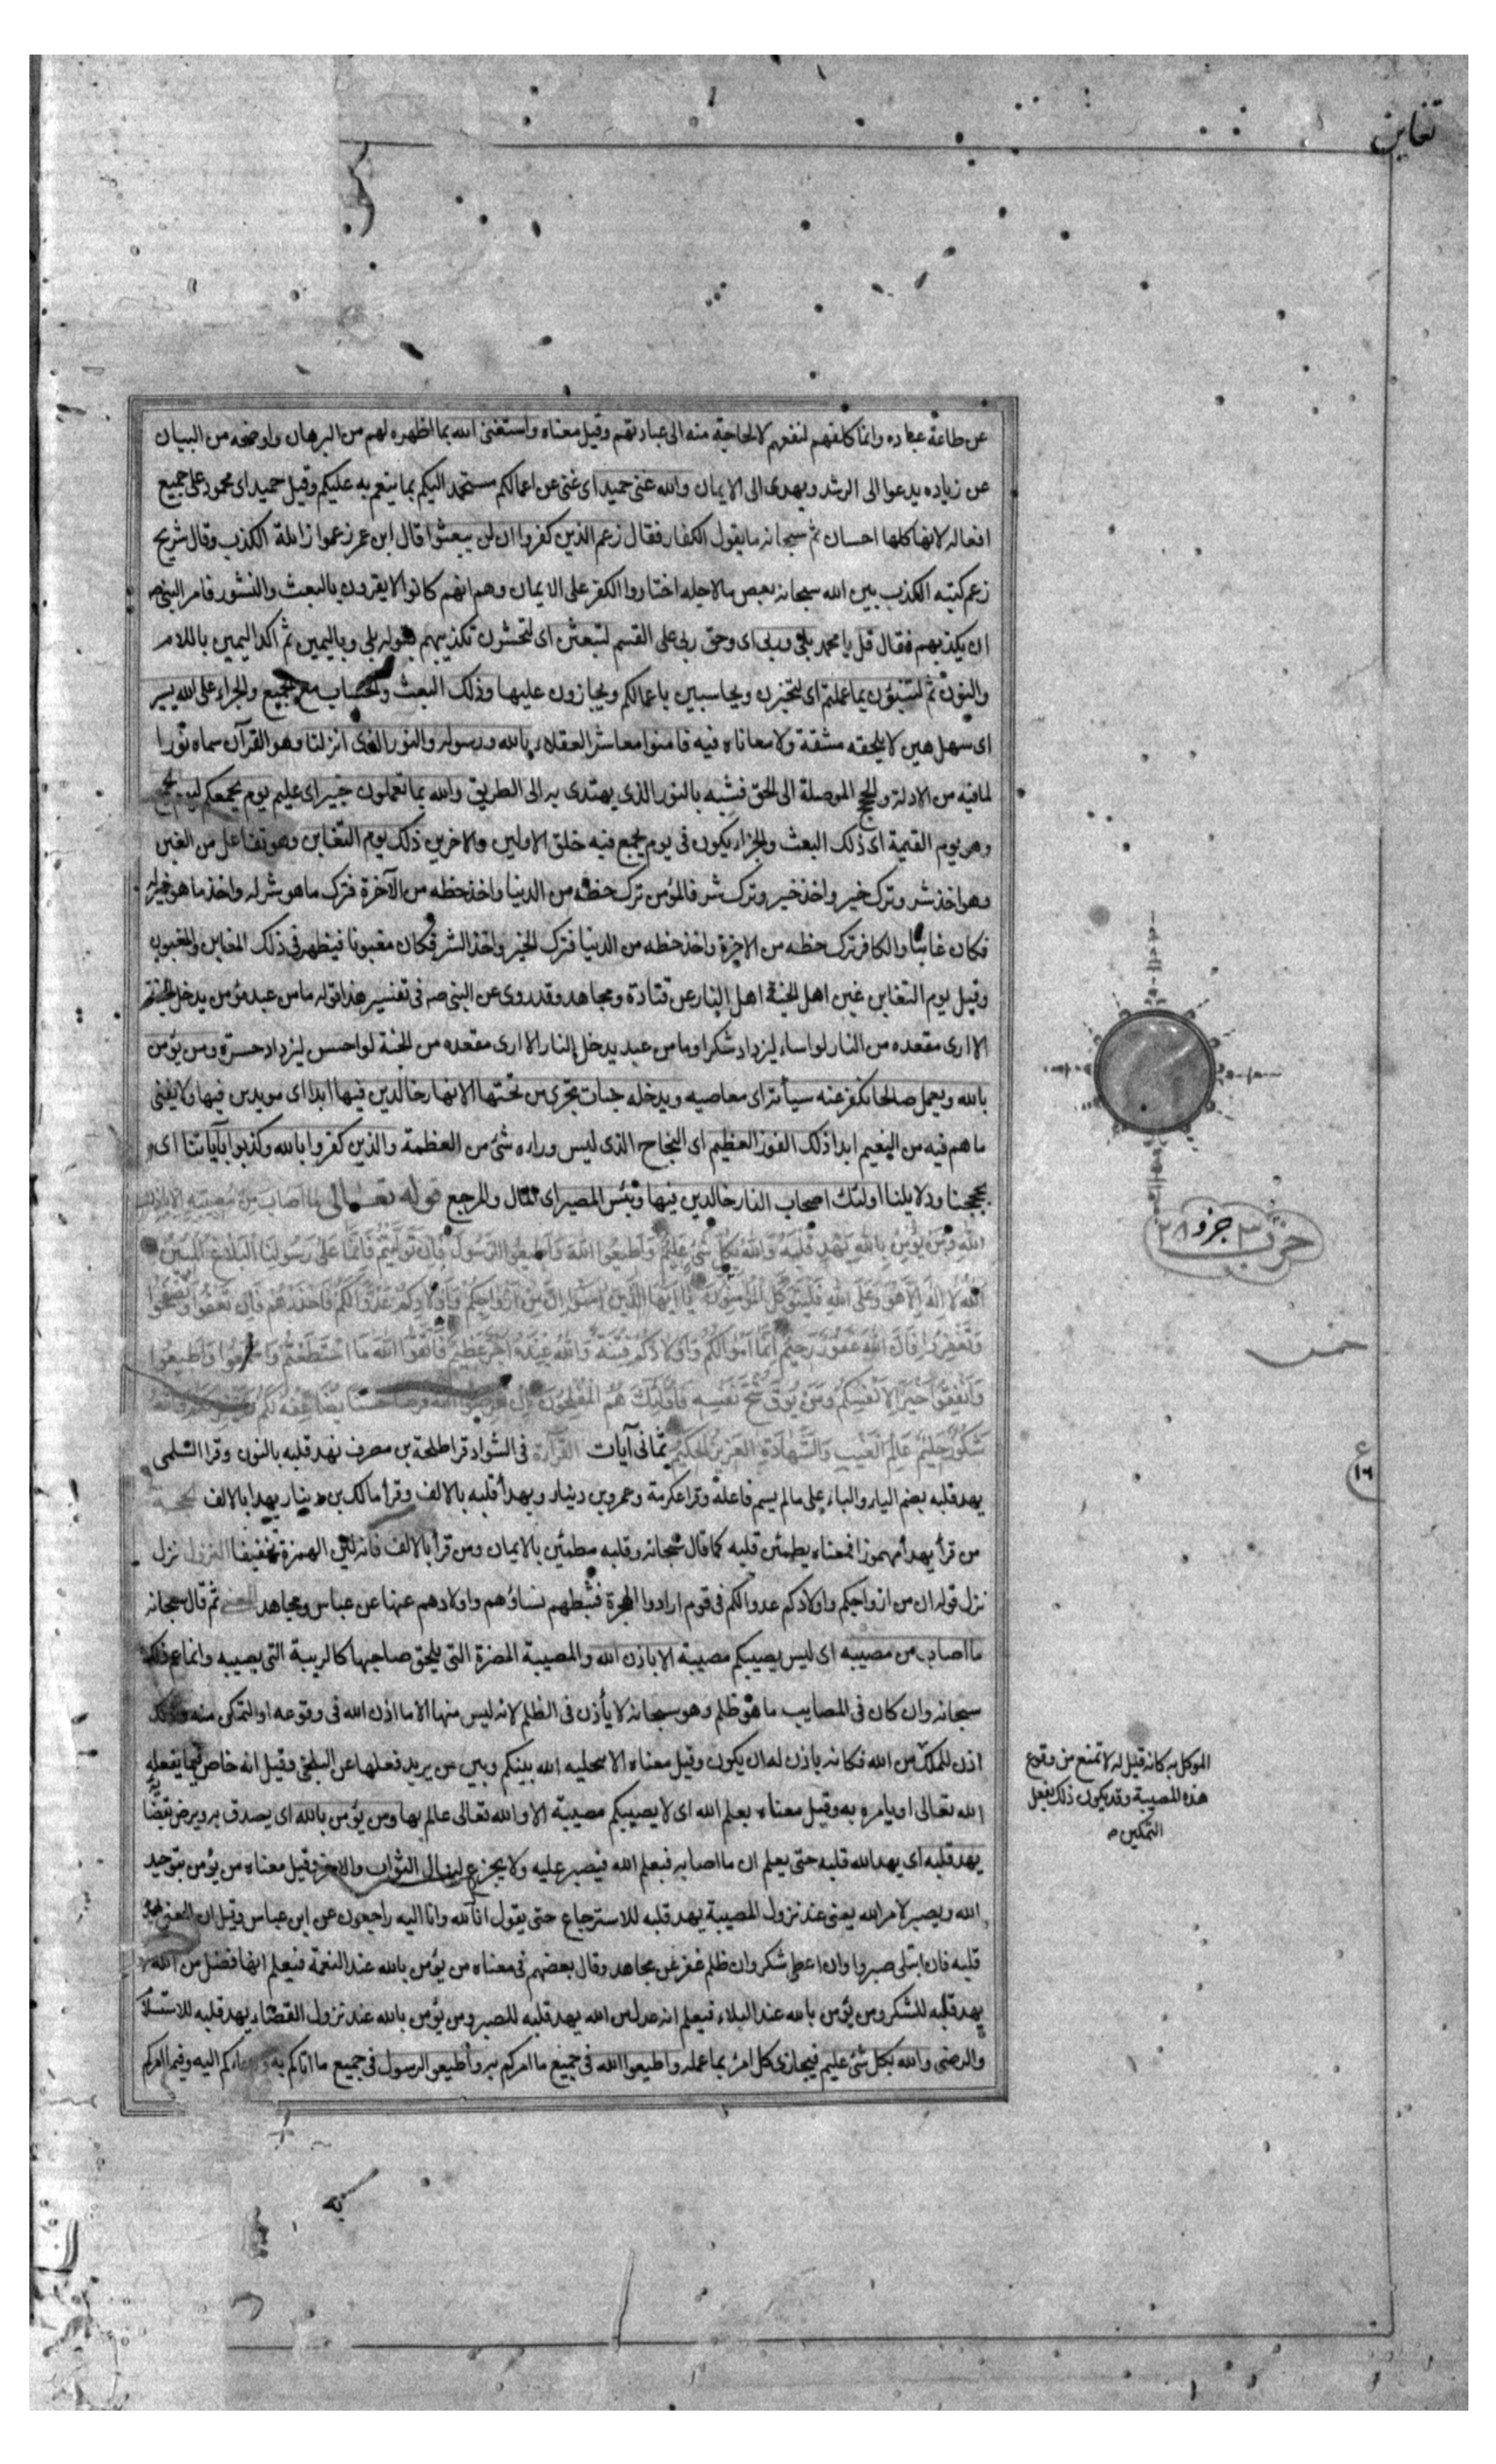 تغابن
عن طاعة عباده وانما كلفهم لنفعهم لا لحاجة منه الى عبادتهم وقيل معناه واستغنى الله بما اظهره لهم من البرهان واوضحه من البيان
عن زياده يدعوا الى الرشد ويهدى الى الايمان والله غنى حميد اى غنى عن اعمالكم مستحمد اليكم بما ينعم به عليكم وقيل حميد اى محمود على جميع
افعاله لانها كلها احسان ثم سبحانه ما يقول الكفار فقال زعم الذين كفروا ان لن يبعثوا قال ابن عمر زعموا زاملة الكذب وقال شريح
زعم كنيته الكذب بين الله سبحانه بعض ما لاجله اختاروا الكفر على الايمان وهم انهم كانوا لا يقرون بالبعث والنشور فامر النبى ص
ان يكذبهم فقال قل يا محمد بلى وربى اى وحق ربى على القسم لتبعثن اى لتحشرن تكذيبهم بقوله بلى وباليمين ثم اكد اليمين باللام
والنون ثم لتنبؤن بما عملتم اى لتخبرن ويحاسبين باعمالكم ويجازون عليها وذلك البعث والحساب مع الجميع والجزاء على الله يسير
اى سهل هين لا يلحقه مشقة ولا معاناه فيه فامنوا معاشر العقلاء بالله ورسوله والنور الذى انزلنا وهو القرآن سماه نورا
لما فيه من الادلة والحجج الموصلة الى الحق فشبه بالنور الذى يهتدى به الى الطريق والله بما تعملون خبير اى عليم يوم يجمعكم ليوم الجمع
وهو يوم القيمة اى ذلك البعث والجزاء يكون فى يوم يجمع فيه خلق الاولين والاخرين ذلك يوم التغابن وهو تفاعل من الغبن
وهو اخذ شر وترك خير واخذ خير وترك شر فالمؤمن ترك حظه من الدنيا واخذ حظه من الآخرة فترك ما هو شر له واخذ ما هو خير له
فكان غابنا والكافر ترك حظه من الاخرة واخذ حظه من الدنيا فترك الخير واخذ الشر فكان مغبونا فيظهر فى ذلك الغابن والمغبون
وقيل يوم التغابن غبن اهل الجنة اهل النار عن قتادة ومجاهد وقد روى عن النبى ص فى تفسير هذا قوله ما من عبد مؤمن يدخل الجنة
الا ارى مقعده من النار لو اساء ليزداد شكرا وما من عبد يدخل النار الا ارى مقعده من الجنة لو احسن ليزداد حسرة ومن يؤمن
بالله ويعمل صالحا نكفر عنه سيأته اى معاصيه ويدخله جنات تجرى من تحتها الانهار خالدين فيها ابدا اى مويدين فيها ولا يفنى
ما هم فيه من النعيم ابدا ذلك الفوز العظيم اى النجاح الذى ليس وراءه شئ من العظمة والذين كفروا بالله وكذبوا بآياتنا اى
بحججنا ودلايلنا اولئك اصحاب النار خالدين فيها وبئس المصير اى المال والمرجع قوله تعالى ما اصاب من مصيبة الا باذن
الله ومن يؤمن بالله يهد قلبه والله بكل شئ عليم واطيعوا الله واطيعوا الرسول فان توليتم فانما على رسولنا البلاغ المبين
الله لا اله الا هو وعلى الله فليتوكل المؤمنون يا ايها الذين امنوا ان من ازواجكم واولادكم عدوا لكم فاحذروهم وان تعفوا وتصفحوا
وتغفروا فان الله غفور رحيم انما اموالكم واولادكم فتنة والله عنده اجر عظيم فاتقوا الله ما استطعتم واسمعوا واطيعوا
وانفقوا خيرا لانفسكم ومن يوق شح نفسه فاولئك هم المفلحون ان تقرضوا الله قرضا حسنا يضاعفه لكم ويغفر لكم والله
شكور حليم عالم الغيب والشهادة العزيز الحكيم ثمانى آيات القراءة فى الشواذ قرا طلحة بن مصرف نهد قلبه بالنون وقرا السلمى
يهد قلبه بضم الياء والباء على ما لم يسم فاعله وقرا عكرمة وعمرو بن دينار ويهدأ قلبه بالالف وقرأ مالك بن دينار يهدا بالالف الحجة
من قرأ يهدأ مهموزا فمعناه يطمئن قلبه كما قال سبحانه وقلبه مطمئن بالايمان ومن قرأ بالالف فانه لين الهمزة تخفيفا النزول نزل
نزل قوله ان من ازواجكم واولادكم عدوا لكم فى قوم ارادوا الهجرة فثبطهم نساؤهم واولادهم عنها عن عباس ومجاهد المعنى ثم قال سبحانه
ما اصاب من مصيبه اى ليس يصيبكم مصيبة الا باذن الله والمصيبة المضرة التى يلحق صاحبها كالريبة التى يصيبه وانما
سبحانه وان كان فى المصايب ما هو ظلم وهو سبحانه لا يأذن فى الظلم لانه ليس منها الا ما اذن الله فى وقوعه او التمكن منه وذلك
اذن للملك من الله فكانه ياذن له ان يكون وقيل معناه الا بتخليه الله بينكم وبين من يريد فعلها عن البلخى وقيل انه خاص فيما يفعله
الله تعالى او يامره به وقيل معناه بعلم الله اى لا يصيبكم مصيبة الا والله تعالى عالم بها ومن يؤمن بالله اى يصدق به ويرض بقضا
يهد قلبه اى يهد الله قلبه حتى يعلم ان ما اصابه فبعلم الله فيصبر عليه ولا يجزع لينال الثواب والاجر وقيل معناه من يؤمن بتوحيد
الله ويصبر لامر الله يعنى عند نزول المصيبة يهد قلبه للاسترجاع حتى يقول انا لله وانا اليه راجعون عن ابن عباس وقيل ان المعنى يهد
قلبه فان ابتلى صبر وان اعطى شكر وان ظلم غفر عن مجاهد وقال بعضهم فى معناه من يؤمن بالله عند النعمة فيعلم انها فضل من الله
يهد قلبه للشكر ومن يؤمن بالله عند البلاء فيعلم انه عدل من الله يهد قلبه للصبر ومن يؤمن بالله عند نزول القضاء يهد قلبه للاستسلا
والرضى والله بكل شئ عليم فيجازى كل امرء بما عمله واطيعوا الله فى جميع ما امركم به واطيعوا الرسول فى جميع ما اتاكم به ودعاكم اليه وفيما امركم
حزب ٣ جزو ٢٨
خمس
ع
١٦
الموكل به كانه قيل له لا تمنع من وقوع
هذه المصيبة وقد يكون ذلك بفعل
التمكين ص